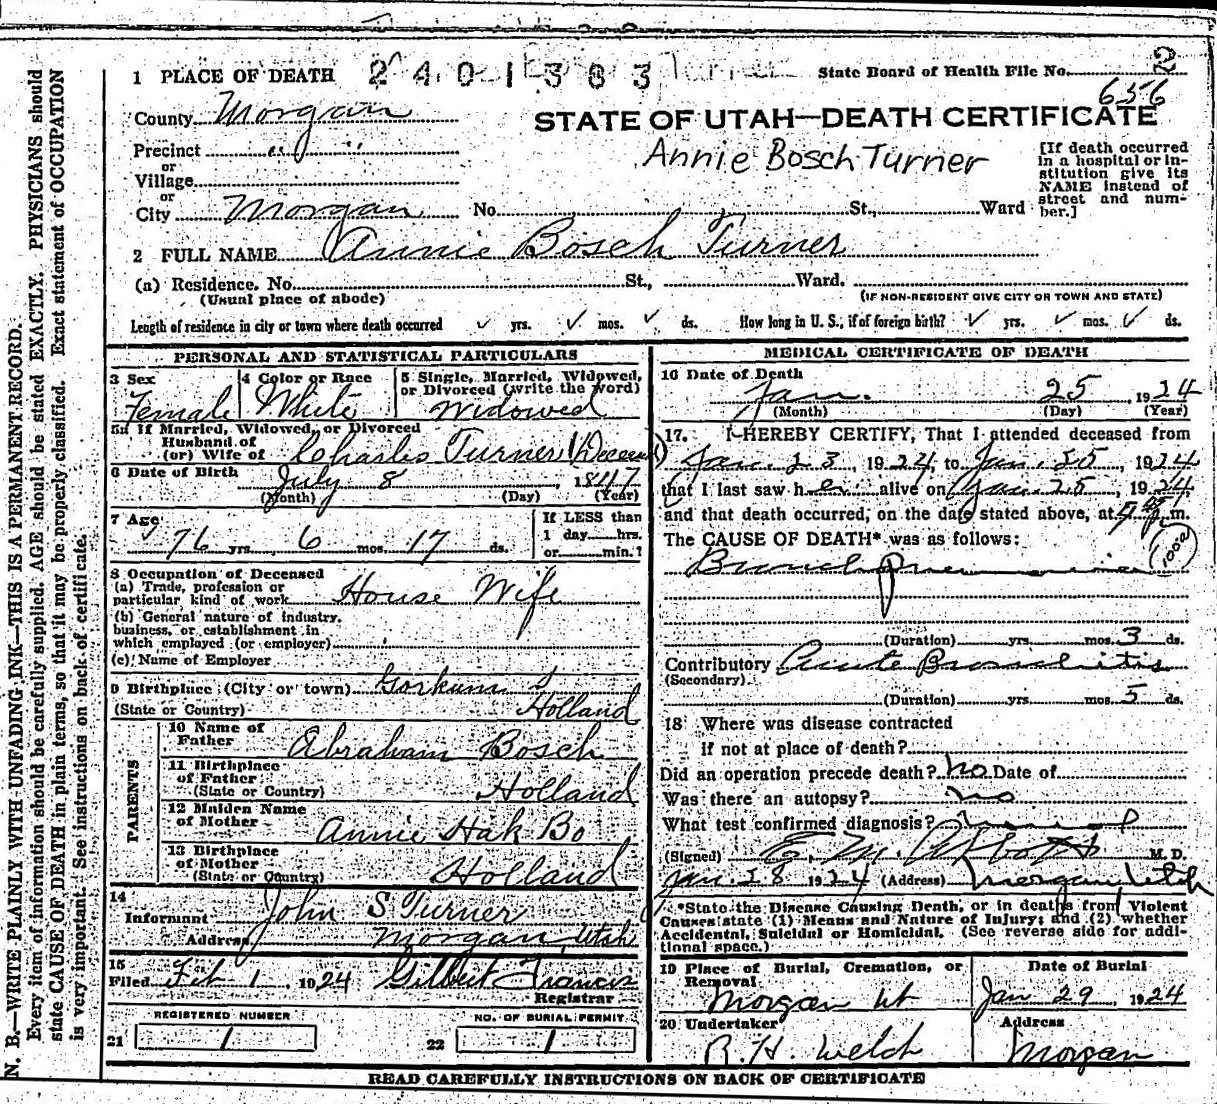 1 PLACE OF DEATH 2401383 Turner State Board of Health File No. 2
656
County Morgan STATE OF UTAH—DEATH CERTIFICATE
Precinct " "
Annie Bosch Turner
[If death occurred in a hospital or institution give its NAME instead of street and number.]
or
Village
or
City Morgan No. St., Ward
2 FULL NAME Annie Bosch Turner
(a) Residence. No. St., Ward.
(Usual place of abode) (IF NON-RESIDENT GIVE CITY OR TOWN AND STATE)
Length of residence in city or town where death occurred ✓ yrs. ✓ mos. ✓ ds. How long in U. S., if of foreign birth? ✓ yrs. ✓ mos. ✓ ds.
PERSONAL AND STATISTICAL PARTICULARS
3 Sex
Female
4 Color or Race
White
5 Single, Married, Widowed, or Divorced (write the word)
Widowed
5a If Married, Widowed, or Divorced
Husband of
(or) Wife of Charles Turner (Deceased)
6 Date of Birth July 8, 1847
(Month) (Day) (Year)
7 Age
76 yrs. 6 mos. 17 ds.
If LESS than
1 day hrs.
or min.?
8 Occupation of Deceased
(a) Trade, profession or
particular kind of work House Wife
(b) General nature of industry,
business, or establishment in
which employed (or employer)
(c) Name of Employer
9 Birthplace (City or town) Gorkum
(State or Country) Holland
PARENTS
10 Name of
Father Abraham Bosch
11 Birthplace
of Father
(State or Country) Holland
12 Maiden Name
of Mother Annie Hak Bo
13 Birthplace
of Mother
(State or Country) Holland
14
Informant John S Turner
Address Morgan, Utah
15
Filed Feb 1, 1924 Gilbert Francis
Registrar
REGISTERED NUMBER NO. OF BURIAL PERMIT
21 1 22 1
MEDICAL CERTIFICATE OF DEATH
16 Date of Death
Jan. 25 1924
(Month) (Day) (Year)
17. I HEREBY CERTIFY, That I attended deceased from
Jan. 23, 1924, to Jan. 25, 1924
that I last saw her alive on Jan. 25, 1924
and that death occurred, on the date stated above, at m.
The CAUSE OF DEATH* was as follows:
Bronchopneumonia (100a)
(Duration) yrs. mos. 3 ds.
Contributory Acute Bronchitis
(Secondary)
(Duration) yrs. mos. 5 ds.
18 Where was disease contracted
if not at place of death?
Did an operation precede death? no Date of
Was there an autopsy? no
What test confirmed diagnosis?
(Signed) E. M. Abbott M. D.
Jan. 28 1924 (Address) Morgan Utah
*State the Disease Causing Death, or in deaths from Violent
Causes state (1) Means and Nature of Injury; and (2) whether
Accidental, Suicidal or Homicidal. (See reverse side for addi-
tional space.)
19 Place of Burial, Cremation, or
Removal
Morgan Ut
Date of Burial
Jan 29, 1924
20 Undertaker
R. H. Welch
Address
Morgan
READ CAREFULLY INSTRUCTIONS ON BACK OF CERTIFICATE
N. B.—WRITE PLAINLY WITH UNFADING INK—THIS IS A PERMANENT RECORD.
Every item of information should be carefully supplied. AGE should be stated EXACTLY. PHYSICIANS should
state CAUSE OF DEATH in plain terms, so that it may be properly classified. Exact statement of OCCUPATION
is very important. See instructions on back of certificate.